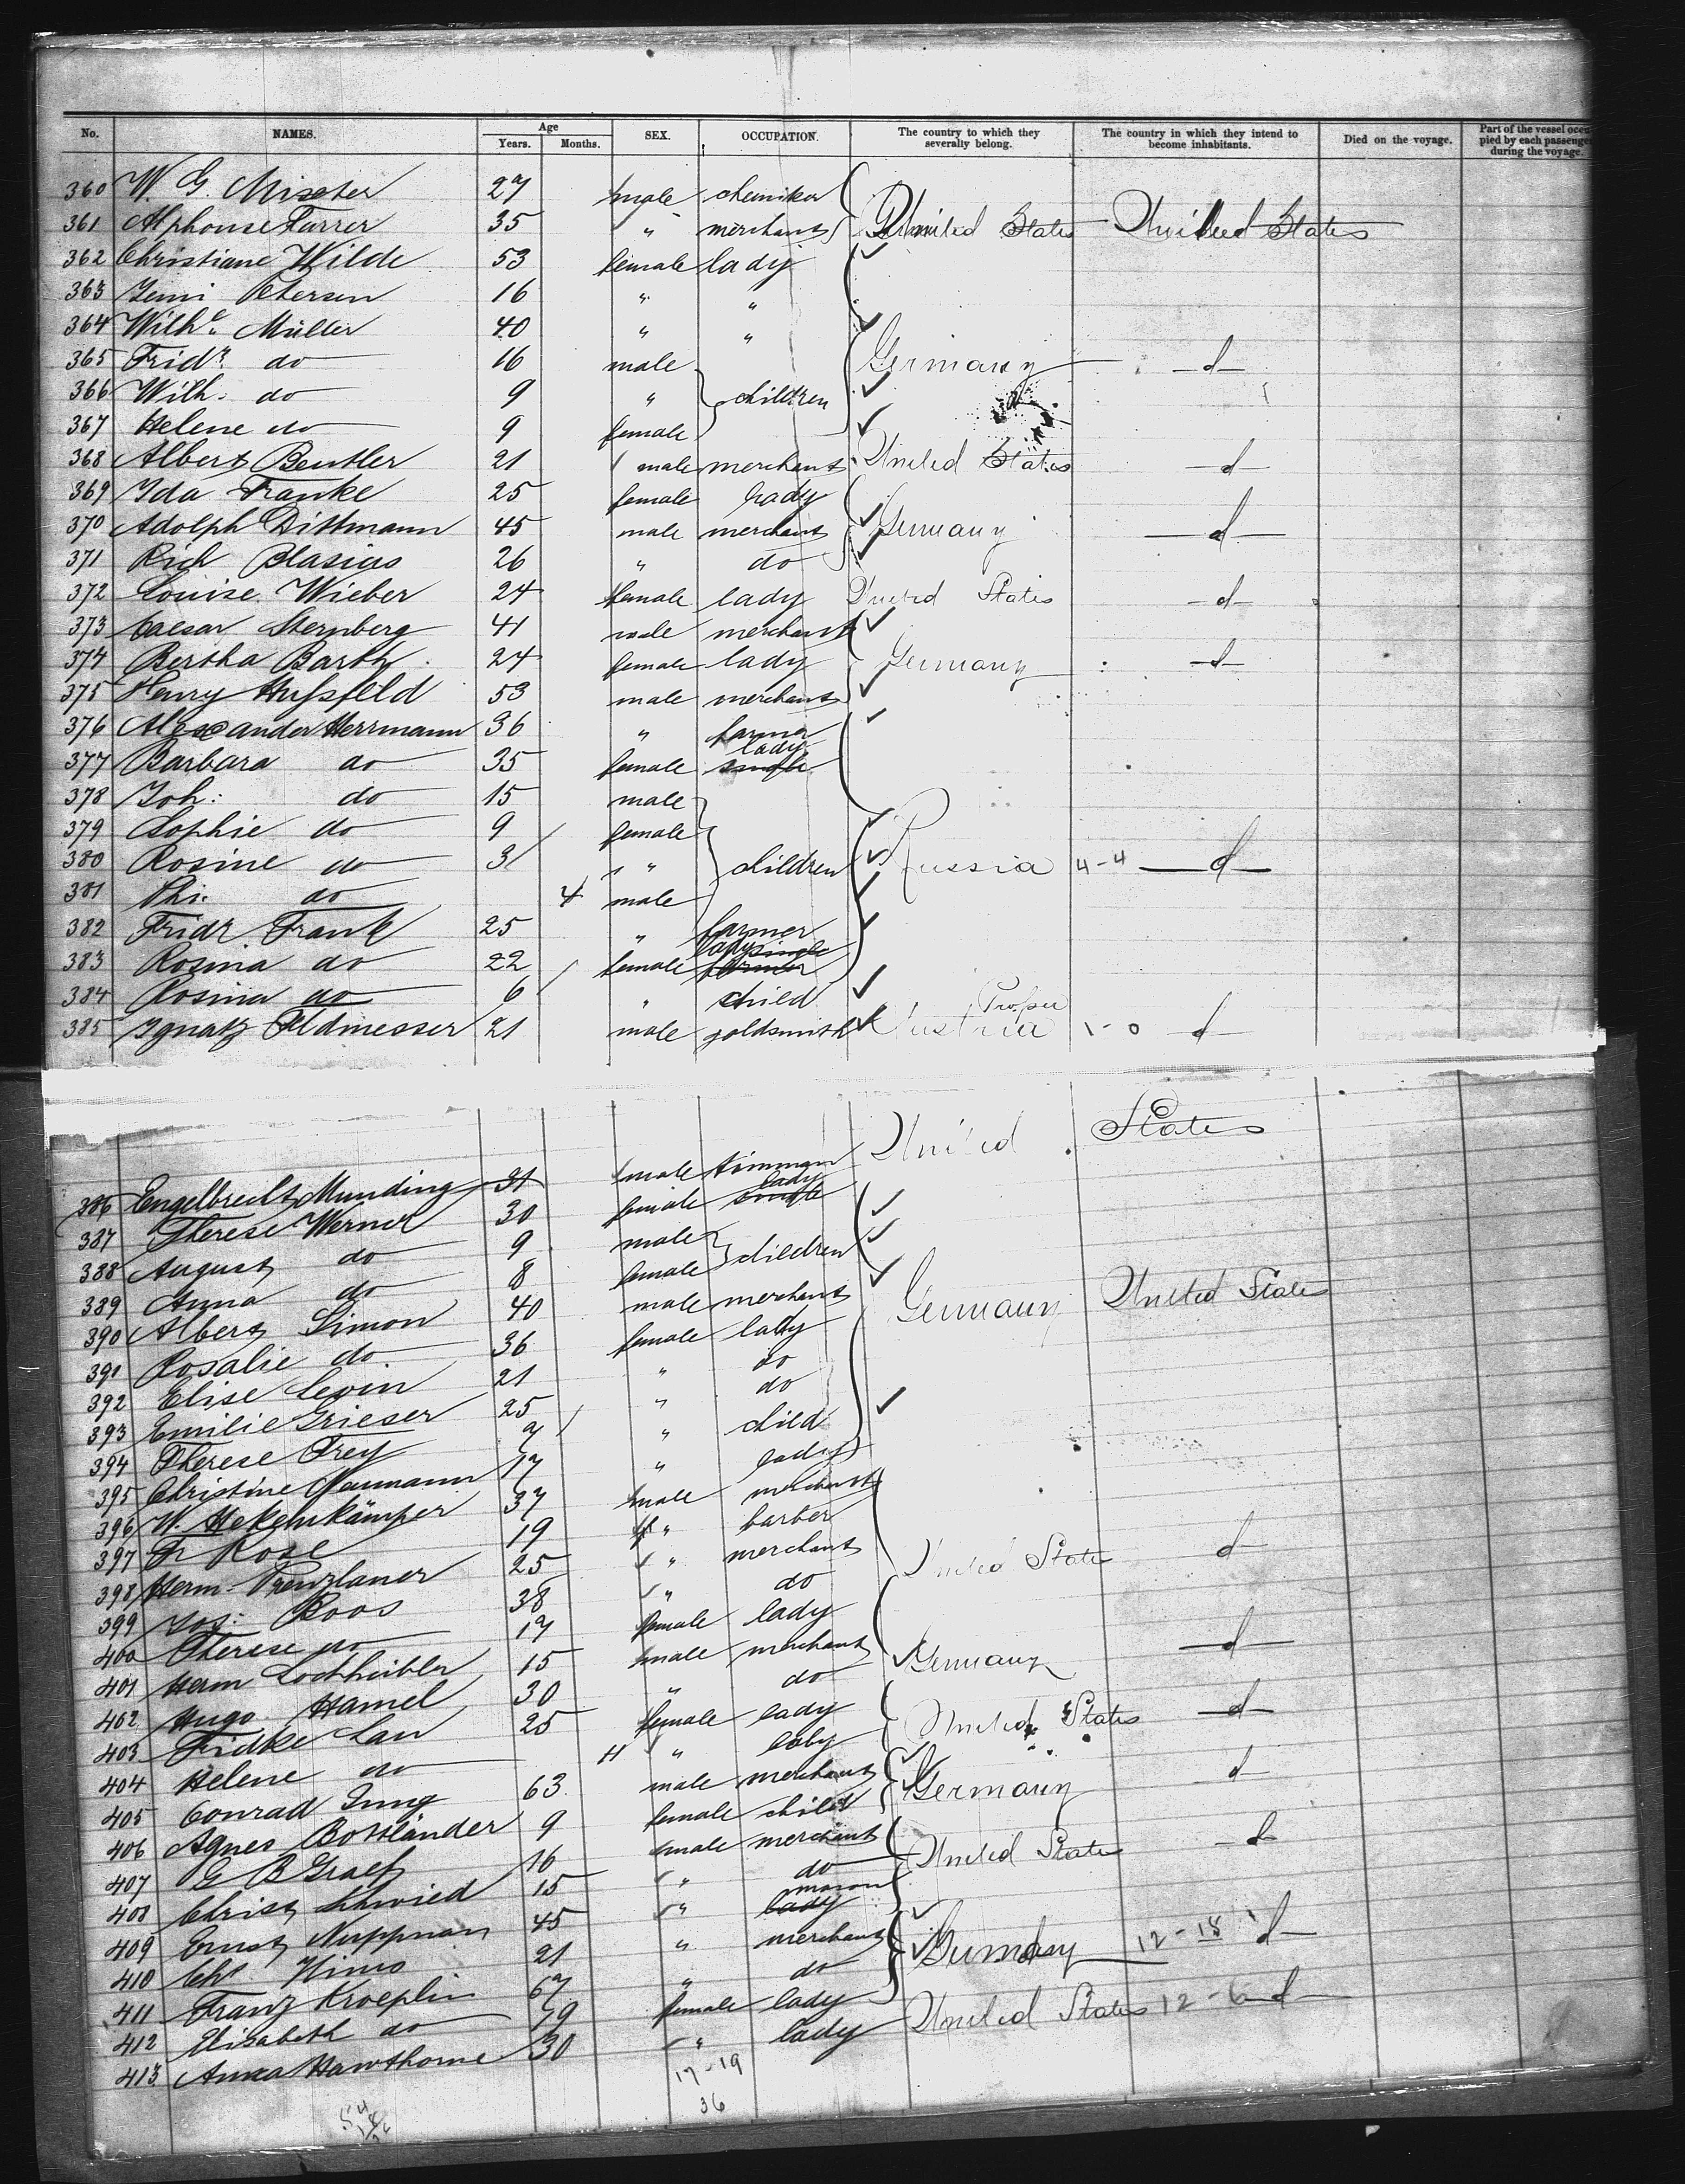 No. NAMES. Age Years. Months. SEX. OCCUPATION. The country to which they severally belong. The country in which they intend to become inhabitants. Died on the voyage. Part of the vessel occupied by each passenger during the voyage.
360 W. G. Mixter 27 male chemiker
361 Alphonse Furrer 35 " merchant United States United States
362 Christiane Wilde 53 female lady
363 Jenni Petersen 16 " "
364 Wilhe. Müller 40 " "
365 Fridr. do 16 male Germany d
366 Wilh. do 9 " children
367 Helene do 9 female
368 Albert Beutler 21 male merchant United States d
369 Ida Franke 25 female lady
370 Adolph Dittmann 45 male merchant Germany d
371 Rich Blasius 26 " do
372 Louise Wieber 24 female lady United States d
373 Caesar Sternberg 41 male merchant
374 Bertha Barth 24 female lady Germany d
375 Henry Hufsfeld 53 male merchant
376 Alexander Herrmann 36 " farmer
377 Barbara do 35 female single lady
378 Joh: do 15 male
379 Sophie do 9 female
380 Rosine do 3 " children Russia 4-4 d
381 Phi. do 4 male
382 Fridr Frank 25 " farmer
383 Rosina do 22 female farmer lady single
384 Rosina do 6 " child
385 Ignatz Feldmesser 21 male goldsmith Austria 1-0 d
United States
386 Engelbrecht Munding 31 male
387 Therese Werner 30 female single lady
388 August do 9 male children
389 Anna do 8 female
390 Albert Simon 40 male merchant Germany United States
391 Rosalie do 36 female lady
392 Elise Levin 21 " do
393 Emilie Grieser 25 " do
394 Therese Frey 7 " child
395 Christine Naumann 17 " lady
396 W. Hekenkämper 37 male merchant
397 Fr Rose 19 " barber
398 Herm. Prenzlauer 25 " merchant United States d
399 Jos: Roos 38 " do
400 Therese do 17 female lady
401 Herm Lochheibler 15 male merchant Germany d
402 Hugo Hamel 30 " do
403 Fridke Lau 25 female lady United States d
404 Helene do 11 " baby
405 Conrad Jung 63 male merchant Germany d
406 Agnes Bottländer 9 female child
407 G B Graef 16 male merchant United States d
408 Christ Schwied 15 " do
409 Ernst Nuppnau 45 " lady mason
410 Chr. Hims 21 " merchant Germany 12-18 d
411 Franz Kroeplin 67 " do
412 Elisabeth do 59 female lady United States 12-6 d
413 Anna Hawthorne 30 " lady
17-19
36